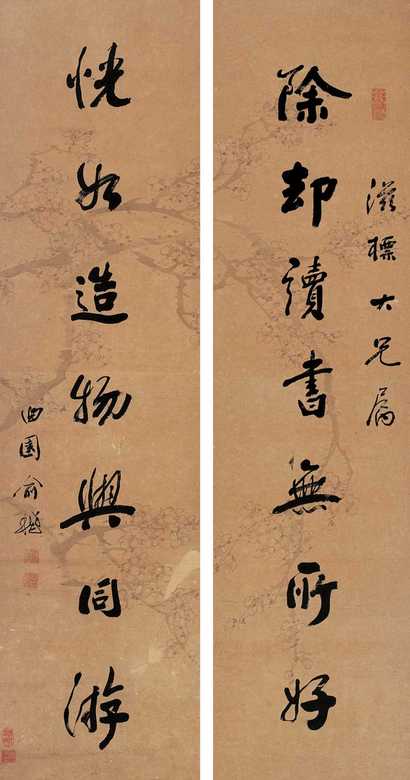 滋標大兄屬
除却讀書無所好
怳如造物與同游
曲園俞樾